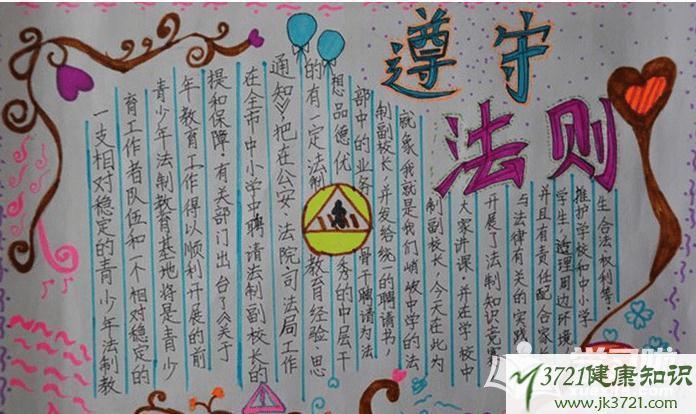 遵守
法则
一支相对稳定的青少年法制教
育工作者队伍和一个相对稳定的
青少年法制教育基地将是青少
年教育工作得以顺利开展的前
提和保障。有关部门出台了《关于
在全市中小学中聘请法制副校长的
通知》,把在公安、法院司法局工作
的有一定法制教育经验、思
想品德优秀的中层干
部中的业务骨干聘请为法
制副校长,并发给统一的聘请书,
就象我就是我们峭岐中学的法
制副校长,今天在此为
大家讲课,并在学校中
开展了法制知识竞
与法律有关的实践
并且有责任配合家
学生,适理周边环境
推护学校和中小学
生合法权利等
3721健康知识
www.jk3721.com